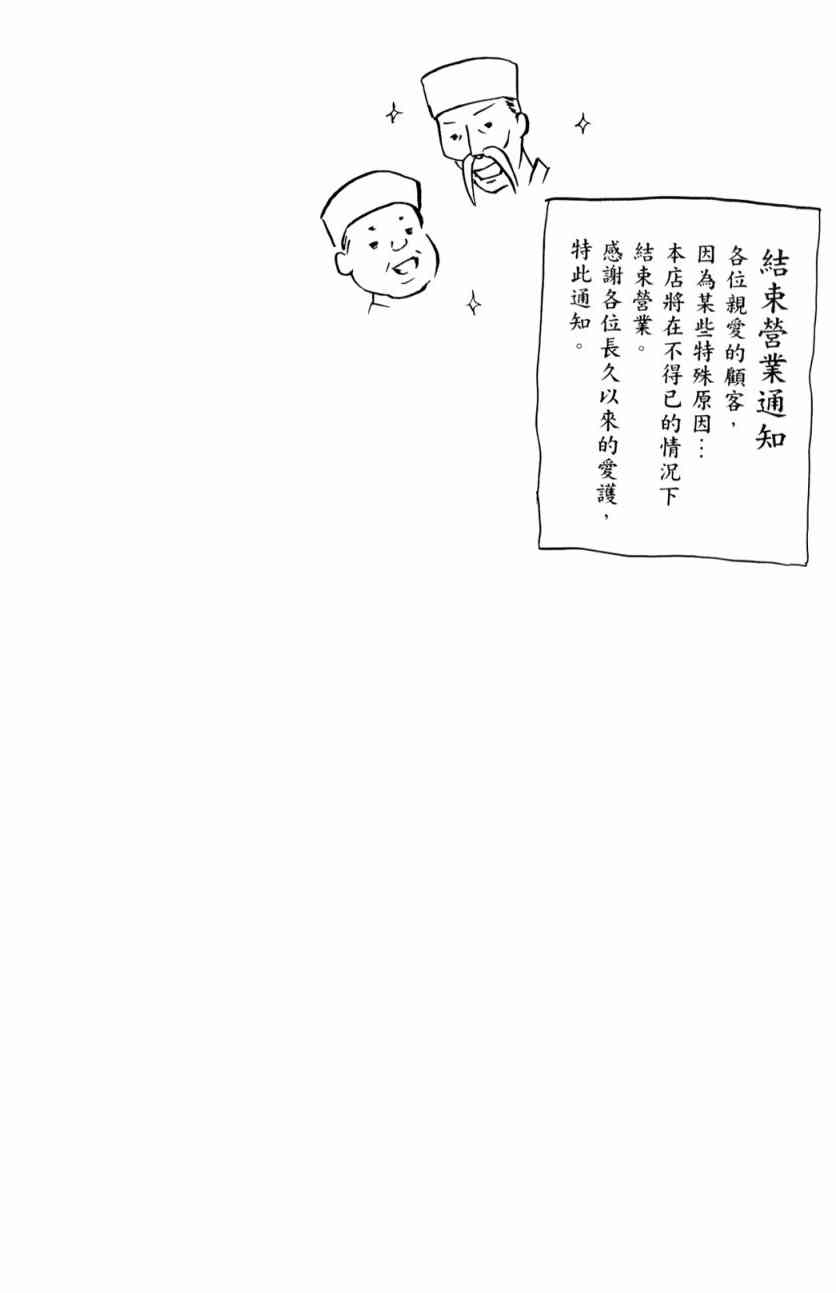 結束營業通知
各位親愛的顧客，
因為某些特殊原因…
本店將在不得已的情況下
結束營業。
感謝各位長久以來的愛護，
特此通知。